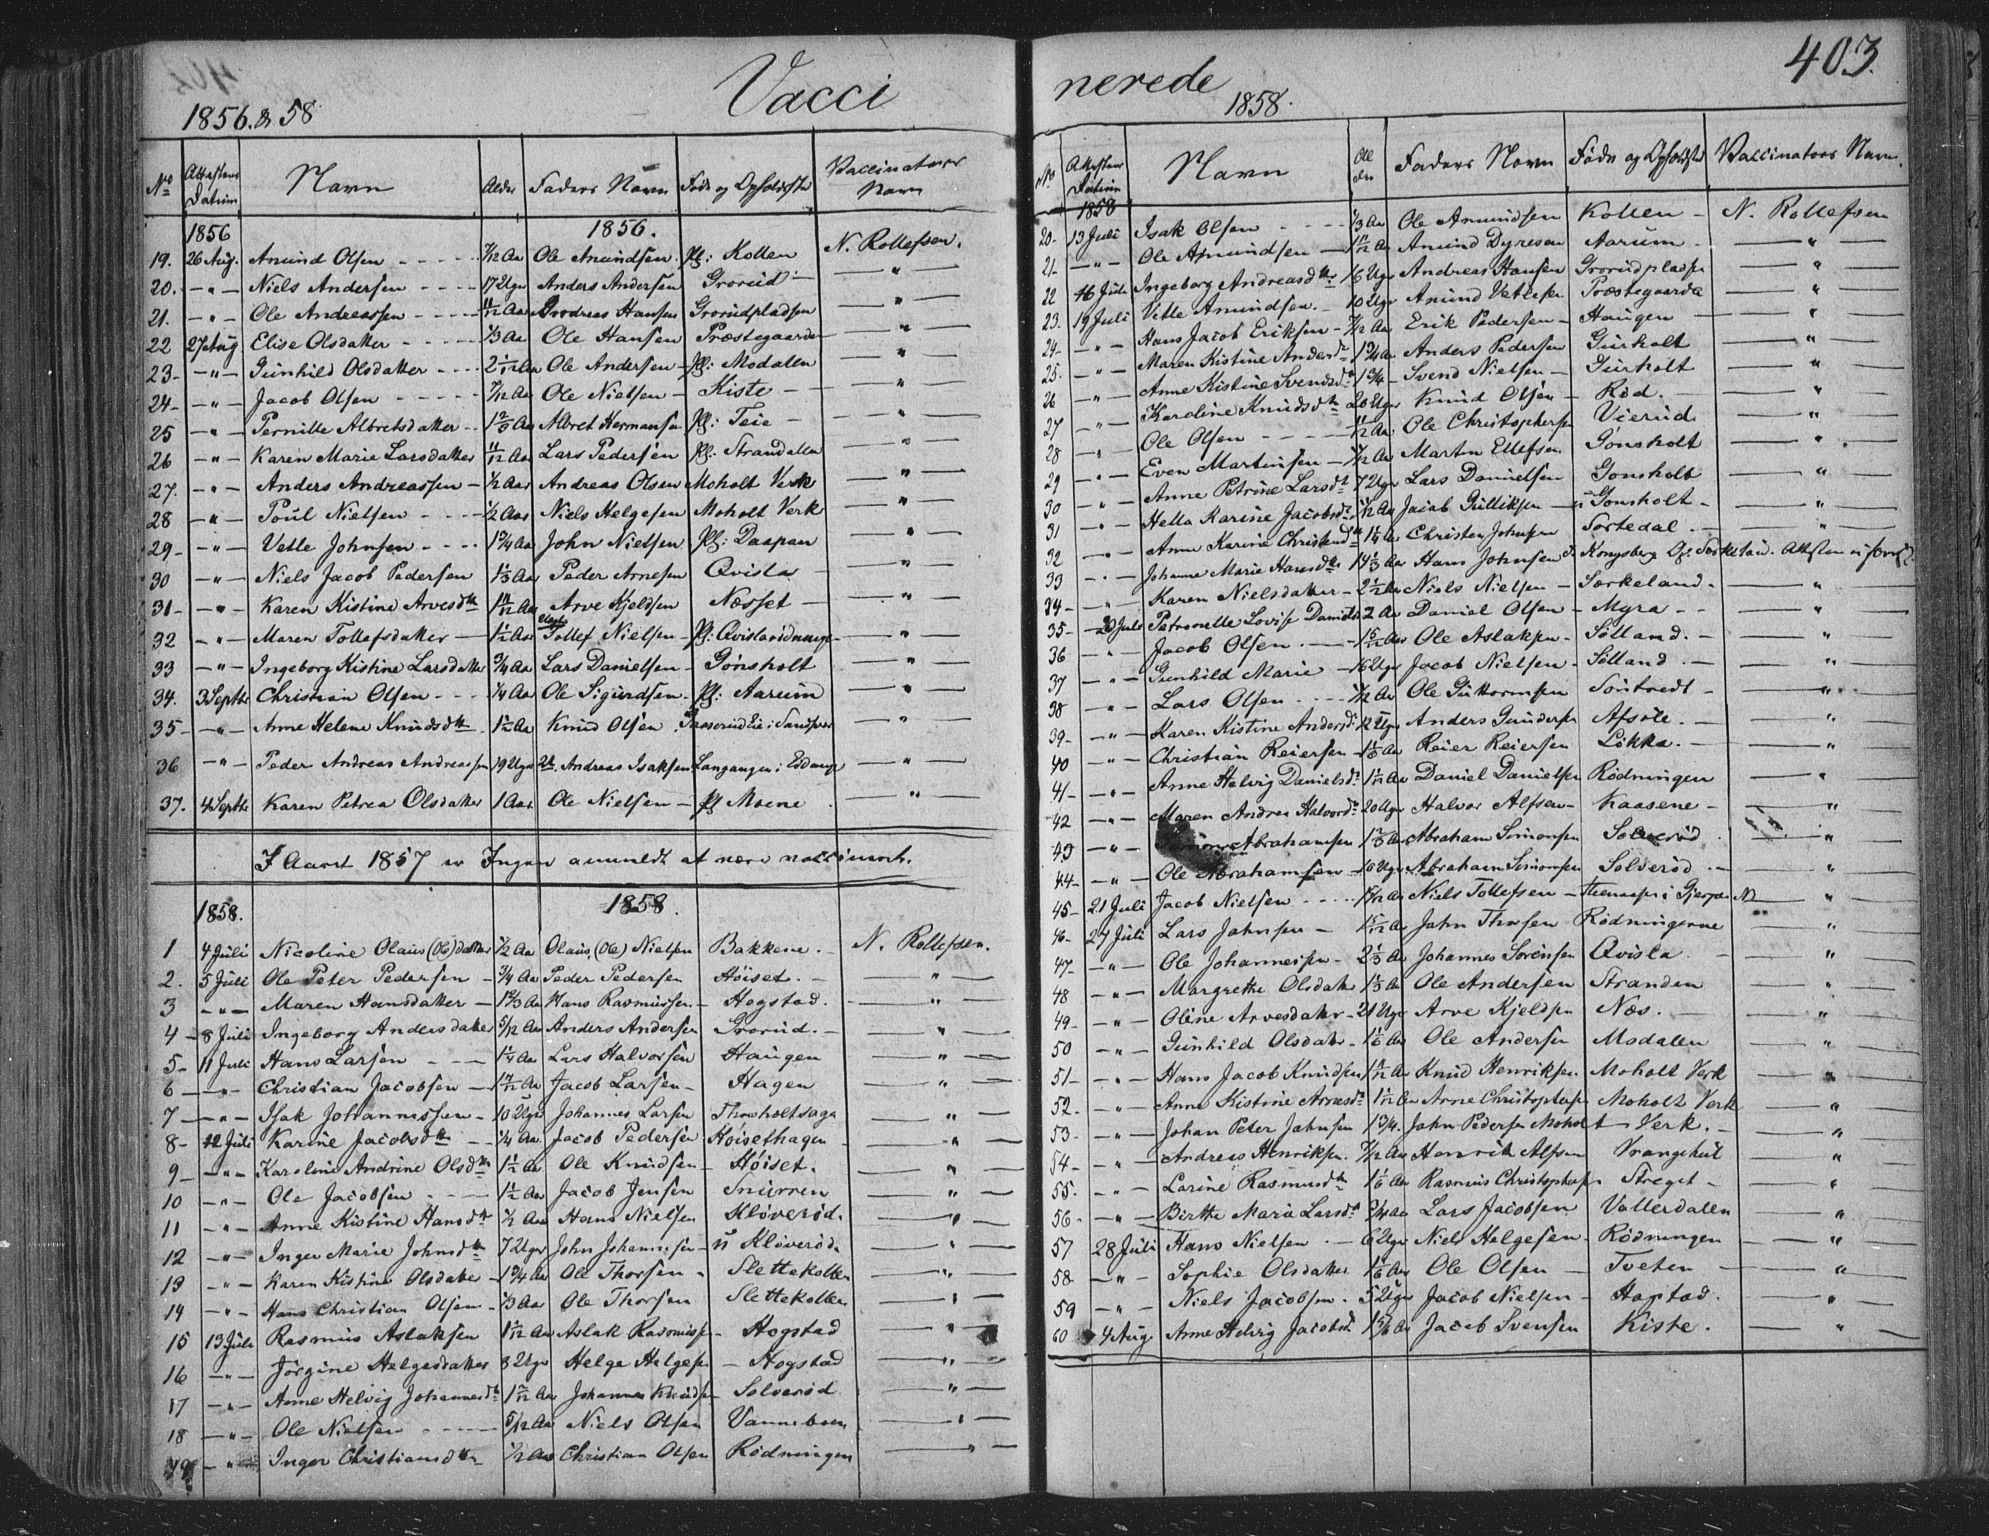 403.
Vaccinerede
1856. & 58
1858.
No Attestens Datum Navn Alder Faders Navn Føde og Opholdsted Vaccinators Navn
1856 1856.
19. 26 Aug. Amund Olsen 7/12 Aar Ole Amundsen pl: Kollen N. Rollefsen.
20. -"- Niels Andersen 17 Uger Anders Andersen Grorud -"-
21. -"- Ole Andreassen 11/12 Aar Andreas Hansen Grorudpladsen -"-
22 27 Aug Elise Olsdatter 1/3 Aar Ole Hansen Præstegaarden -"-
23- -"- Gunhild Olsdatter 2 1/12 Aar Ole Andersen pl: Modalen -"-
24- -"- Jacob Olsen 7/12 Aar Ole Nielsen Kiste -"-
25 -"- Pernille Albretsdatter Albret Hermansen pl: Teie -"-
26 -"- Karen Marie Larsdatter 11/12 Aar Lars Pedersen pl: Strandalen -"-
27. -"- Anders Andreassen 1/2 Aar Andreas Olsen Moholt Verk -"-
28 -"- Poul Nielsen 1/2 Aar Niels Helgesen Moholt Verk -"-
29- -"- Vetle Johnsen 1 3/4 Aar John Nielsen pl: Daapan -"-
30 -"- Niels Jacob Pedersen 1 1/3 Aar Peder Arnesen Qvisla -"-
31- -"- Karen Kistine Arvesdtr Arve Kjeldsen Næsset -"-
32 -"- Maren Tollefsdatter 1 1/2 Aar Tollef Nielsen pl: Qvislarødningen -"-
33 -"- Ingeborg Kistine Larsdatter 3/4 Aar Lars Danielsen Gønsholt -"-
34. 3 Septbr Christian Olsen 1/4 Aar Ole Sigurdsen pl: Aarum -"-
35- -"- Anne Helene Knudsdtr 1 1/2 Aar Knud Olsen -"-
36 -"- Peder Andreas Andreassen 19 Uger Andreas Isaksen Langangen i Eidanger -"-
37. 4 Septbr Karen Petrea Olsdatter 1 Aar Ole Nielsen pl Moene -"-
I Aaret 1857 er Ingen anmeldt at være vaccineret.
1858. 1858.
1 4 Juli Nicoline Olaus (Ole) datter 1/2 Aar Olaus, (Ole) Nielsen Bakkene. N. Rollefsen.
2. 5 Juli Ole Peter Pedersen 3/4 Aar Peder Pedersen Høiset. -"-
3 -"- Maren Hansdatter 1 2/3 Aar Hans Rasmussen Hogstad. -"-
4 8 Juli Ingeborg Andersdatter 5/12 Aar Anders Andersen Grorud. -"-
5- 11 Juli Hans Larsen 1 1/4 Aar Lars Halvorsen Haugen -"-
6 -"- Christian Jacobsen Jacob Larsen Hagen -"-
7 -"- Isak Johannessen 10 Uger Johannes Larsen Thorsholtsaga -"-
8- 12 Juli Karine Jacobsdtr 1/4 Aar Jacob Pedersen Høisethagen -"-
9- -"- Karoline Andrine Olsdtr 1 1/2 Aar Ole Knudsen Høiset. -"-
10 -"- Ole Jacobsen 1 1/2 Aar Jacob Jensen Snurren -"-
11 -"- Anne Kistine Hansdtr 1/2 Aar Hans Nielsen Kløverød. -"-
12 -"- Inger Marie Johnsdtr 7 Uger John Johannesen Kløverød. -"-
13 -"- Karen Kistine Olsdatter 1 3/4 Aar Ole Thorsen Slettekollen -"-
14 -"- Hans Christian Olsen 1/3 Aar Ole Thorsen Slettekollen -"-
15 13 Juli Rasmus Aslaksen Aslak Rasmussen Hogstad -"-
16 -"- Jørgine Helgesdatter 8 Uger Helge Helgesen Hogstad -"-
17 -"- Anne Helvig Johannesdtr Johannes Knudsen Solverød -"-
18 -"- Ole Nielsen 5/12 Aar Niels Olsen Vanneboen -"-
19 -"- Inger Christiansdtr 1/2 Aar Christian Olsen Rødningen -"-
No Attestens Datum Navn Alder Faders Navn Føde og Opholdsted Vaccinators Navn.
1858
20- 13 Juli Isak Olsen 1/3 Aar Ole Amundsen Kollen N. Rollefsen
21- -"- Ole Amundsen Amund Dyresen Aarum -"-
22 16 Juli Ingeborg Andreasdtr 16 Uger Andreas Hansen Grorudpladsen -"-
23. 19 Juli Vetle Amundsen 10 Uger Amund Vetlesen Præstegaarden -"-
24- -"- Hans Jacob Eriksen 7/12 Aar Erik Pedersen Haugen -"-
25- -"- Maren Kistine Andersdtr 1 3/4 Aar Anders Pedersen Gurholt -"-
26 -"- Anne Kistine Svendsdtr 1 3/4 Svend Nielsen Gurholt -"-
27 -"- Karoline Knudsdtr 20 Uger Knud Olsen Rød. -"-
28 -"- Ole Olsen 11/12 Aar Ole Christophersen Vierud -"-
29 -"- Even Martinsen Marten Ellefsen Gønsholt -"-
30 -"- Anne Petrine Larsdtr 7 Uger Lars Danielsen Gonsholt -"-
31 -"- Hella Karine Jacobsdtr Jacob Gulliksen Gonsholt -"-
32 -"- Anne Karine Christensdtr Christen Johnsen Tortedal -"-
33 -"- Johanne Marie Hansdtr 14 1/3 Aar Hans Johnsen
34- -"- Karen Nielsdatter 2 1/2 Aar Niels Nielsen Sørkeland. -"-
35- 20 Juli Petronelle Lovise Danielsdtr 2 Aar Daniel Olsen Myra -"-
36 -"- Jacob Olsen 1 5/12 Aar Ole Aslaksen Sølland. -"-
37 -"- Gunhild Marie 16 Uger Jacob Nielsen Sølland. -"-
38 -"- Lars Olsen Ole Guttormsen Søntvedt -"-
39- -"- Karen Kistine Andersdtr 12 Uger Anders Gundersen Afsøle. -"-
40 -"- Christian Reiersen Reier Reiersen Løkka. -"-
41- -"- Anne Helvig Danielsdtr Daniel Danielsen Rødningen -"-
42 -"- Maren Andrea Halvorsdtr 20 Uger Halvor Alfsen Kaasene -"-
43 -"- Simon Abrahamsen 1 2/3 Aar Abraham Simonsen Solverød -"-
44- -"- Ole Abrahamsen 10 Uger Abraham Simonsen Solverød -"-
45- 21 Juli Jacob Nielsen Niels Tollefsen i Gjerpen -"-
46- 27 Juli Lars Johnsen John Thorsen Rødningerne -"-
47- -"- Ole Johannessen 2 1/3 Aar Johannes Sørensen Qvisla -"-
48 -"- Margrethe Olsdatter 1 1/3 Aar Ole Andersen Stranden -"-
49- -"- Oline Arvesdatter 21 Uger Arve Kjeldsen Næs. -"-
50 -"- Gunhild Olsdatter 1 1/6 Aar Ole Andersen Modalen -"-
51- -"- Hans Jacob Knudsen Knud Henriksen Moholt Verk -"-
52. -"- Anne Kistine Arnesdtr Arne Christophersen Moholt Verk -"-
53- -"- Johan Peter Johnsen 1 3/4. John Pedersen Moholt Verk. -"-
54- -"- Andreas Henriksen 7/12 Aar Henrik Alfsen Vrangehul -"-
55. -"- Larine Rasmusdtr 1 1/6 Aar Rasmus Christophersen Streget -"-
56- -"- Birthe Maria Larsdtr Lars Jacobsen Vallerdalen -"-
57 28 Juli Hans Nielsen 6 Uger Niels Helgesen Rødningen -"-
58- -"- Sophie Olsdatter 1 1/6 Aar Ole Olsen Tveten -"-
59 -"- Niels Jacobsen 5 Uger Jacob Nielsen Hogstad. -"-
60 4 Aug Anne Helvig Jacobsdtr 1 5/6 Aar Jacob Svensen Kiste. -"-